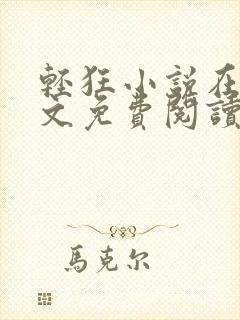 輕狂小說在
文免費閱讀
馬克尔